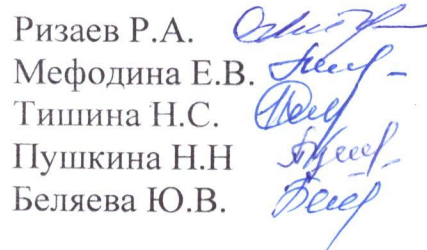 Ризаев Р.А.
Мефодина Е.В.
Тишина Н.С.
Пушкина Н.Н
Беляева Ю.В.